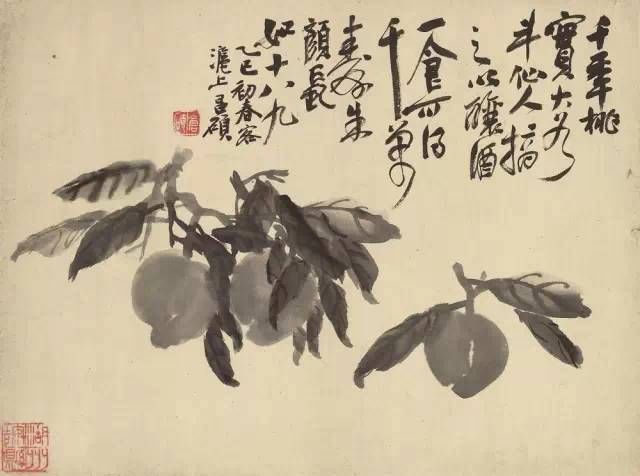 千年桃
實大於
斗仙人摘
之以釀酒
一食可得
千萬
壽朱
顏長
如十八九
乙巳初春客
滬上昌碩